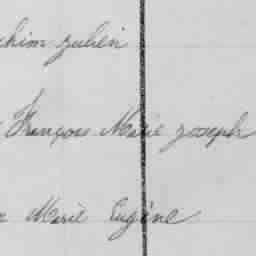 chim Julien
François Marie Joseph
Marie Eugène